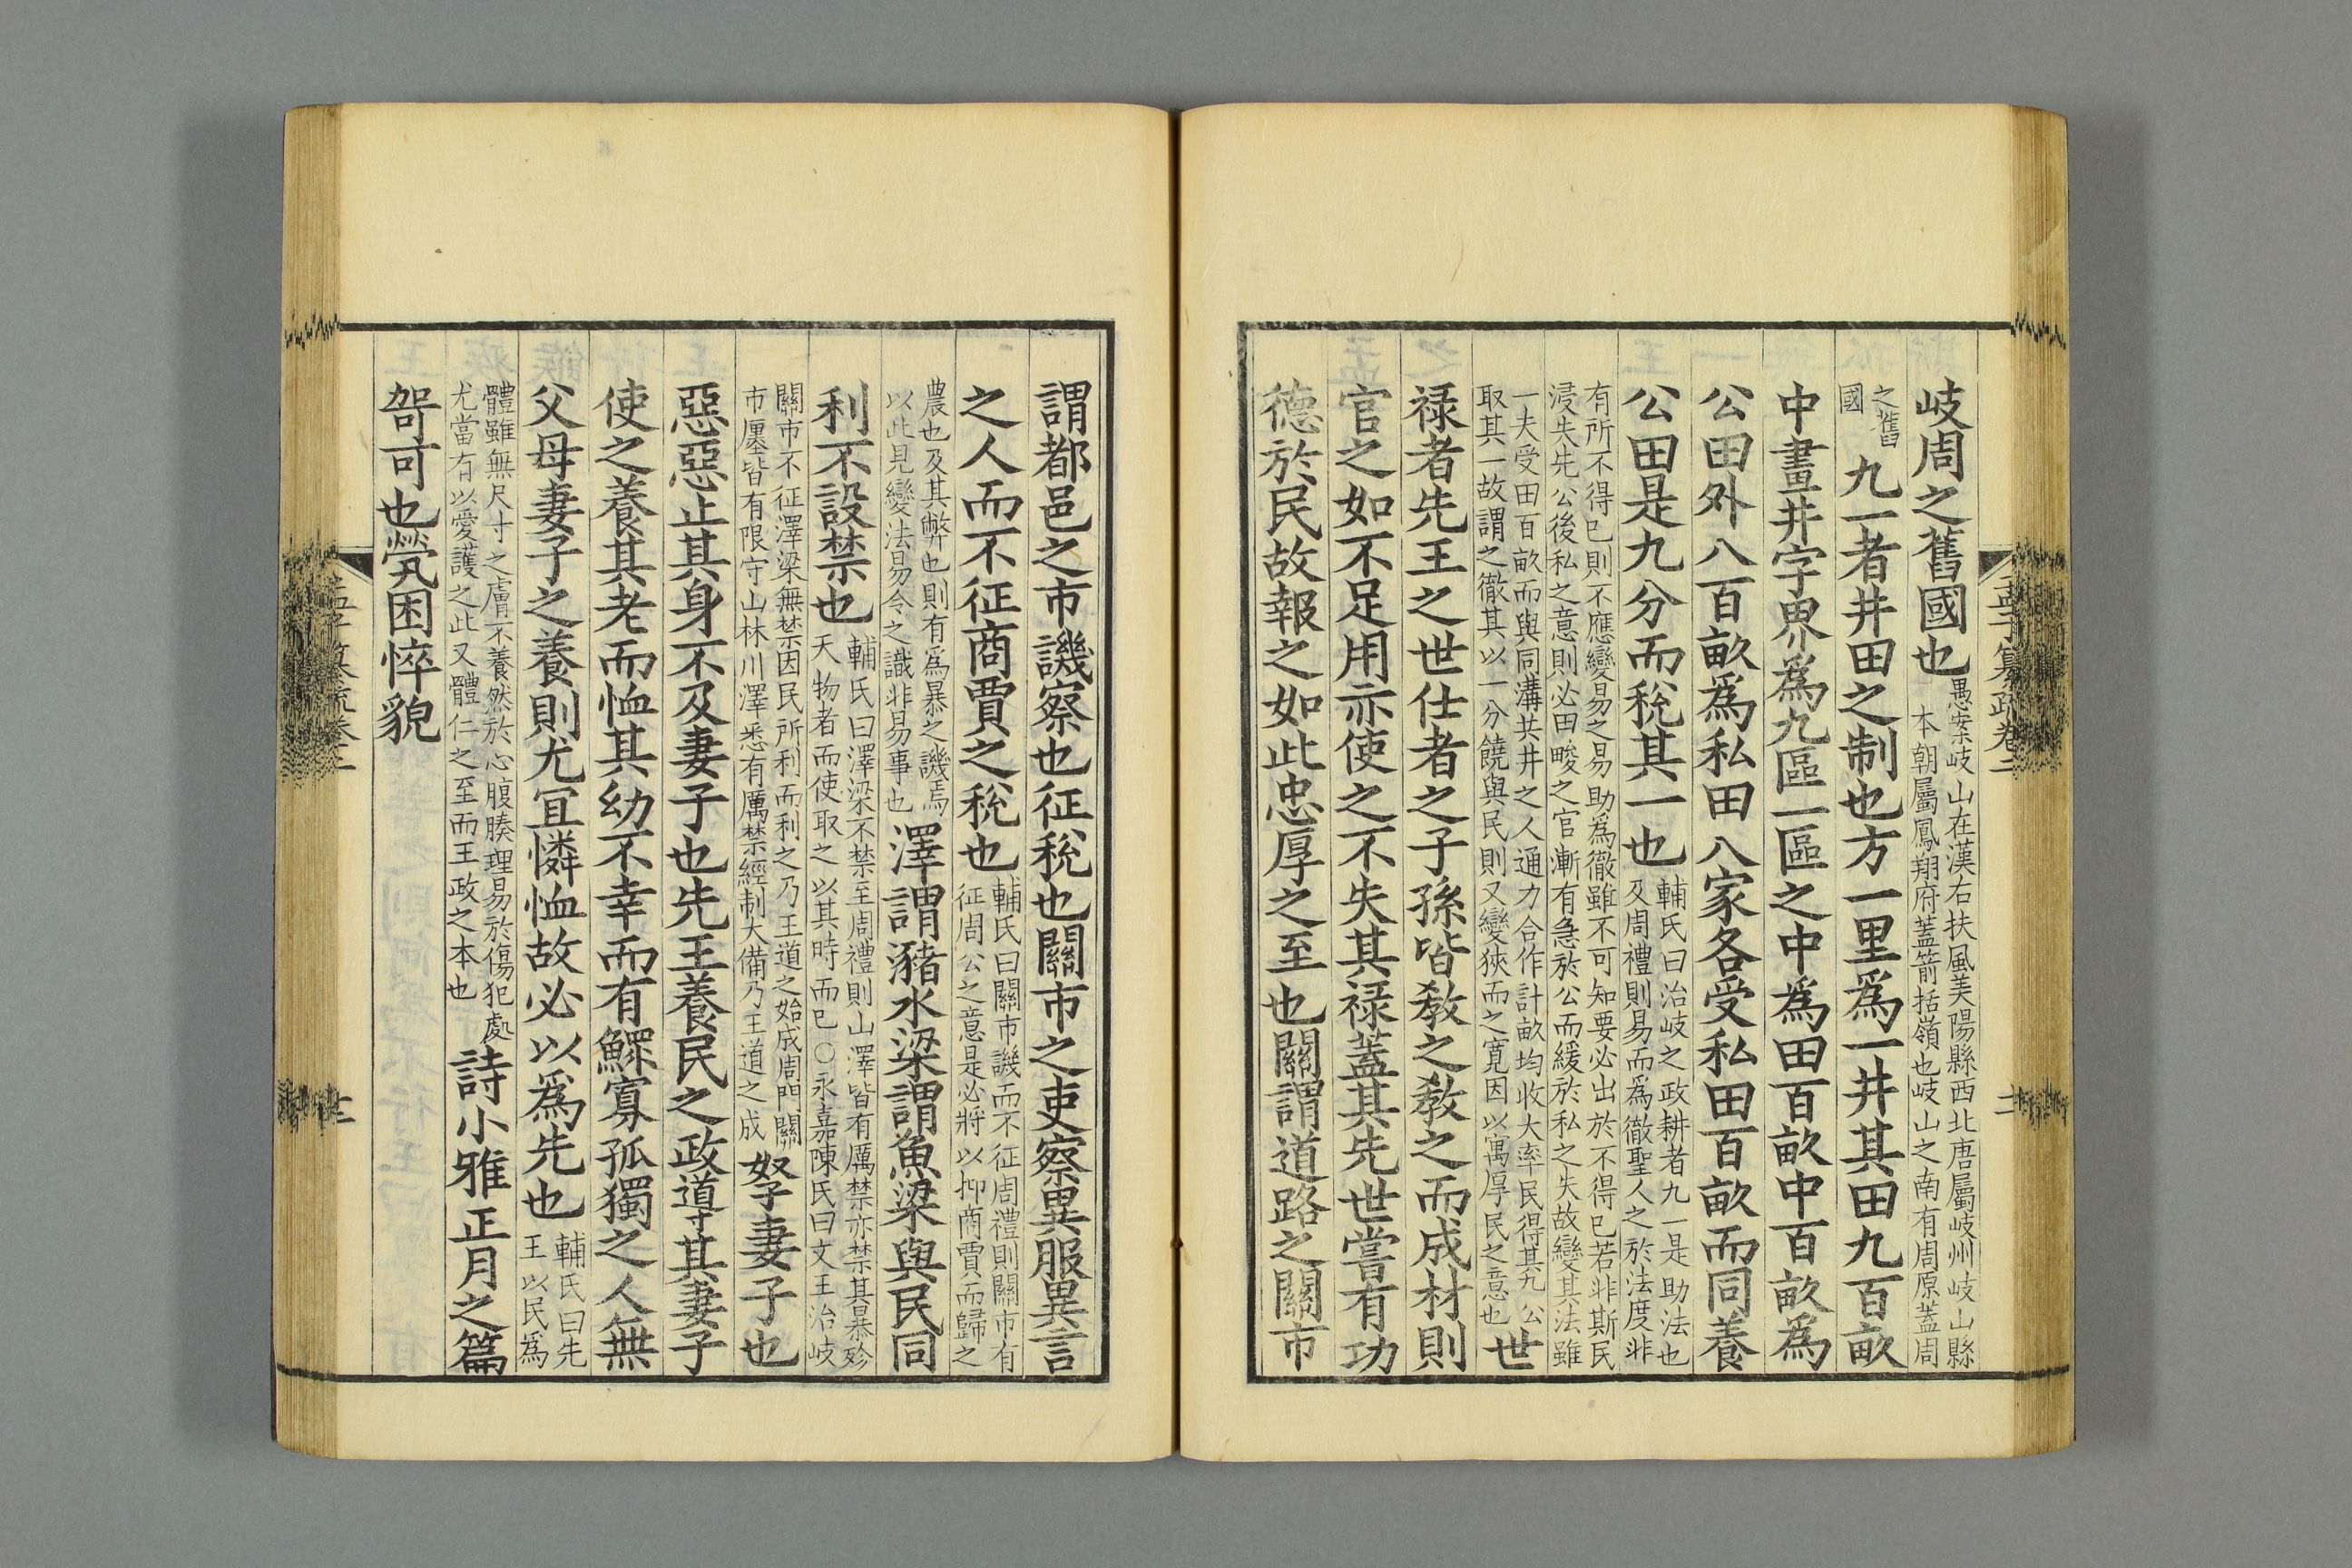 岐周之舊國也
愚案岐山在漢右扶風美陽縣西北唐屬岐州岐山縣
本朝屬鳳翔府蓋箭括嶺也岐山之南有周原蓋周
之舊
國
九一者井田之制也方一里爲一井其田九百畝
中畫井字界爲九區一區之中爲田百畝中百畝爲
公田外八百畝爲私田八家各受私田百畝而同養
公田是九分而稅其一也
輔氏曰治岐之政耕者九一是助法也
及周禮則易而爲徹聖人之於法度非
有所不得已則不應變易之易助爲徹雖不可知要必出於不得已若非斯民
浸失先公後私之意則必田畯之官漸有急於公而緩於私之失故變其法雖
一夫受田百畝而與同溝共井之人通力合作計畝均收大率民得其九公
取其一故謂之徹其以一分饒與民則又變狹而之寬因以寓厚民之意也
世
禄者先王之世仕者之子孫皆教之教之而成材則
官之如不足用亦使之不失其禄蓋其先世嘗有功
德於民故報之如此忠厚之至也關謂道路之關市
謂都邑之市譏察也征稅也關市之吏察異服異言
之人而不征商賈之稅也
輔氏曰關市譏而不征周禮則關市有
征周公之意是必將以抑商賈而歸之
農也及其弊也則有爲暴之譏焉
以此見變法易令之識非易事也
澤謂瀦水梁謂魚梁與民同
利不設禁也
輔氏曰澤梁不禁至周禮則山澤皆有厲禁亦禁其暴殄
天物者而使取之以其時而已○永嘉陳氏曰文王治岐
關市不征澤梁無禁因民所利而利之乃王道之始成周門關
市廛皆有限守山林川澤悉有厲禁經制大備乃王道之成
孥妻子也
惡惡止其身不及妻子也先王養民之政導其妻子
使之養其老而恤其幼不幸而有鰥寡孤獨之人無
父母妻子之養則尤宜憐恤故必以爲先也
輔氏曰先
王以民爲
體雖無尺寸之膚不養然於心腹腠理易於傷犯處
尤當有以愛護之此又體仁之至而王政之本也
詩小雅正月之篇
哿可也煢困悴貌